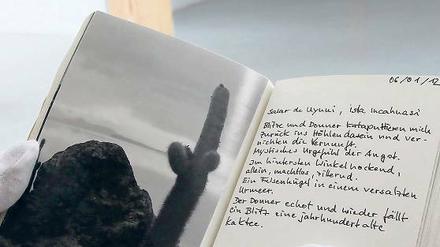 06/01/12
Salar de Uyuni, Isla Incahuasi
Blitze und Donner katapultieren mich
zurück ins Höhlendasein und ver-
nichten die Vernunft.
Mystisches Urgefühl der Angst.
Im hintersten Winkel hockend,
allein, machtlos, zitternd.
Ein Felsenhügel in einem versalzten
Urmeer.
Der Donner echot und wieder fällt
ein Blitz eine jahrhundertalte
Kaktee.